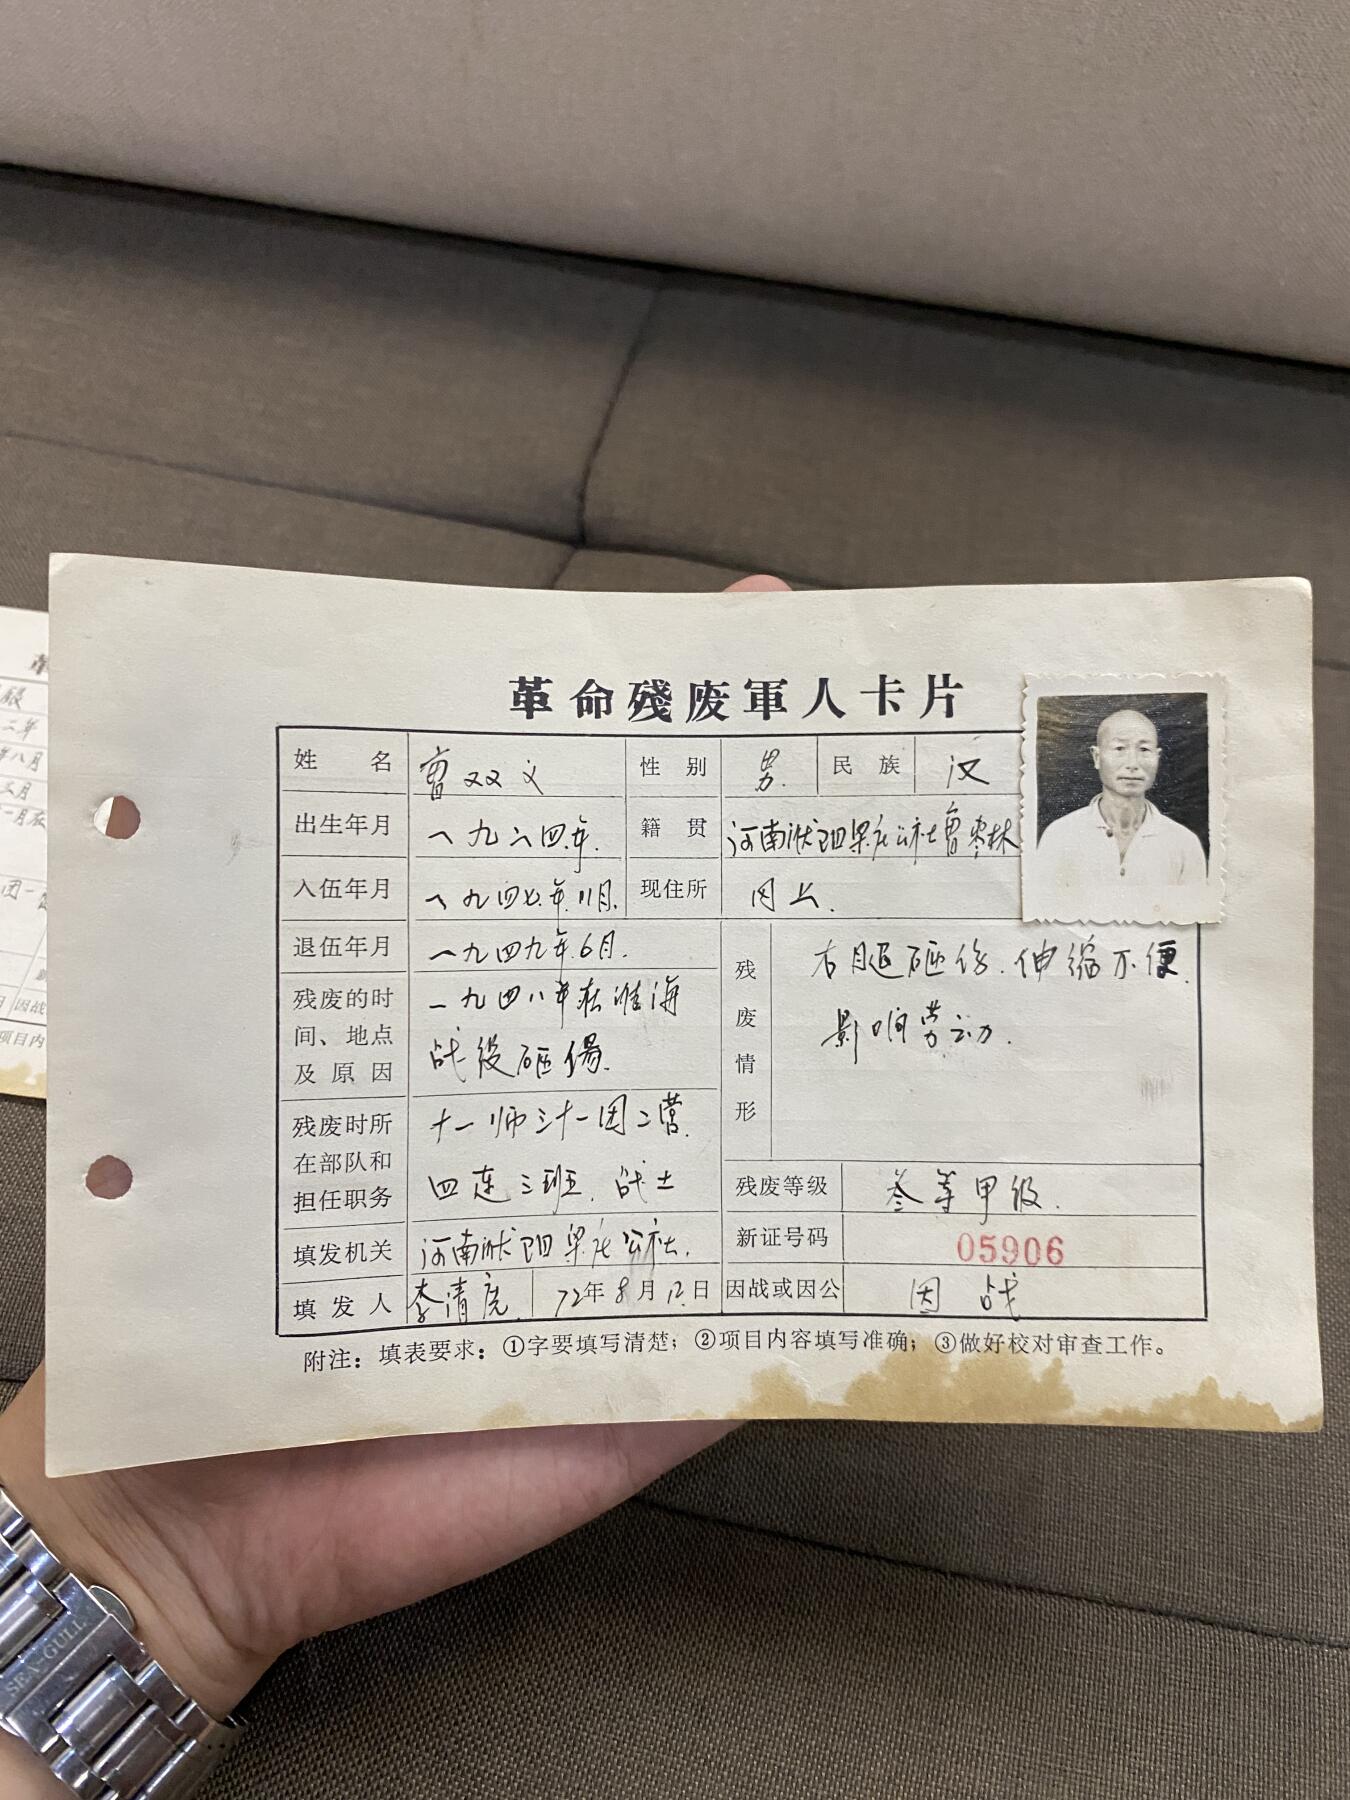 革命殘废軍人卡片
姓名 曹双义 性别 男. 民族 汉
出生年月 一九二四年. 籍贯 河南濮阳梁庄公社曹枣林
入伍年月 一九四七年11月. 现住所 同上.
退伍年月 一九四九年6月.
残废的时间、地点及原因 一九四八年在淮海
战役砸伤.
残废情形 右腿砸伤.伸缩不便.
影响劳动.
残废时所在部队和担任职务 十一师三十一团二营.
四连三班.战士
残废等级 叁等甲级.
填发机关 河南濮阳梁庄公社.
新证号码 05906
填发人 李清 72年8月12日 因战或因公 因战
附注：填表要求：①字要填写清楚；②项目内容填写准确；③做好校对审查工作。
二年
年八月
三月
一月在
团一
因战
项目内
SEA-GULL